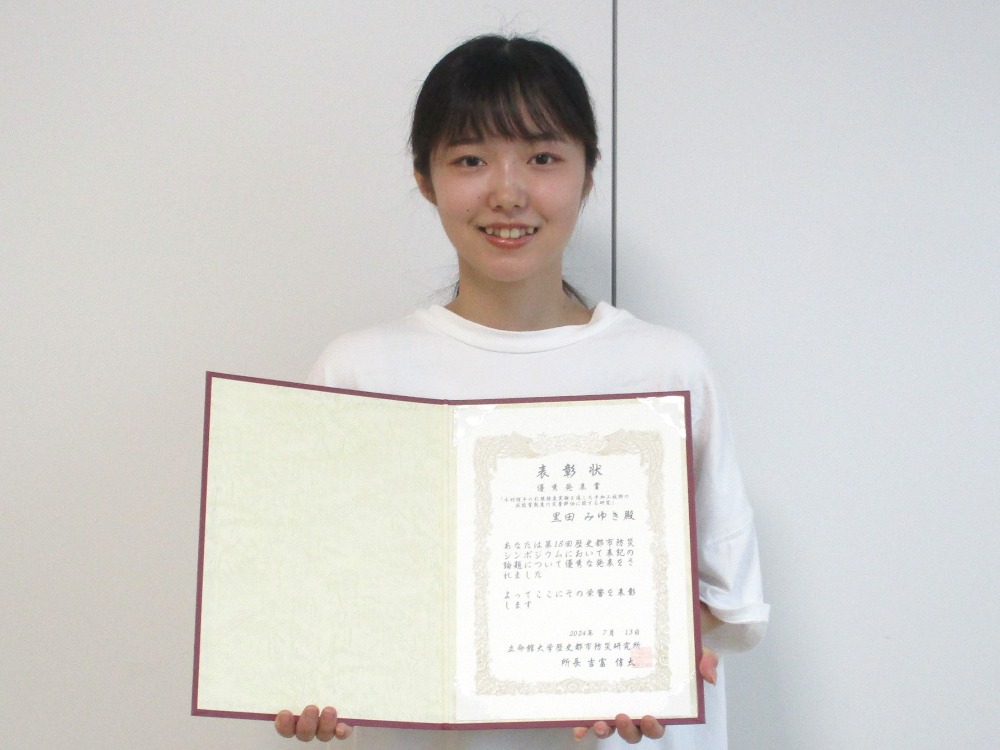 表彰状
優秀発表賞
黒田 みゆき殿
あなたは第18回歴史都市防災
シンポジウムにおいて表記の
論題について優秀な発表をさ
れました
よってここにその栄誉を表彰
します
2024年 7月 13日
立命館大学歴史都市防災研究所
所長 吉富 信太